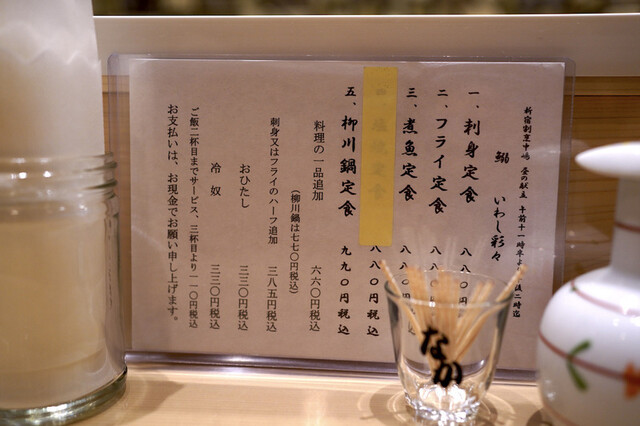 新宿割烹中嶋 昼の献立 午前十一時半より午後二時迄
鰯 いわし彩々
一、刺身定食 八八〇円
二、フライ定食 八八
三、煮魚定食 八八〇
定食 八八〇円税込
五、柳川鍋定食 九九〇円税込
料理の一品追加 六六〇円税込
(柳川鍋は七七〇円税込)
刺身又はフライのハーフ追加 三八五円税込
おひたし 三三〇円税込
冷奴 三三〇円税込
ご飯二杯目までサービス、三杯目より一一〇円税込
お支払いは、お現金でお願い申し上げます。
なか